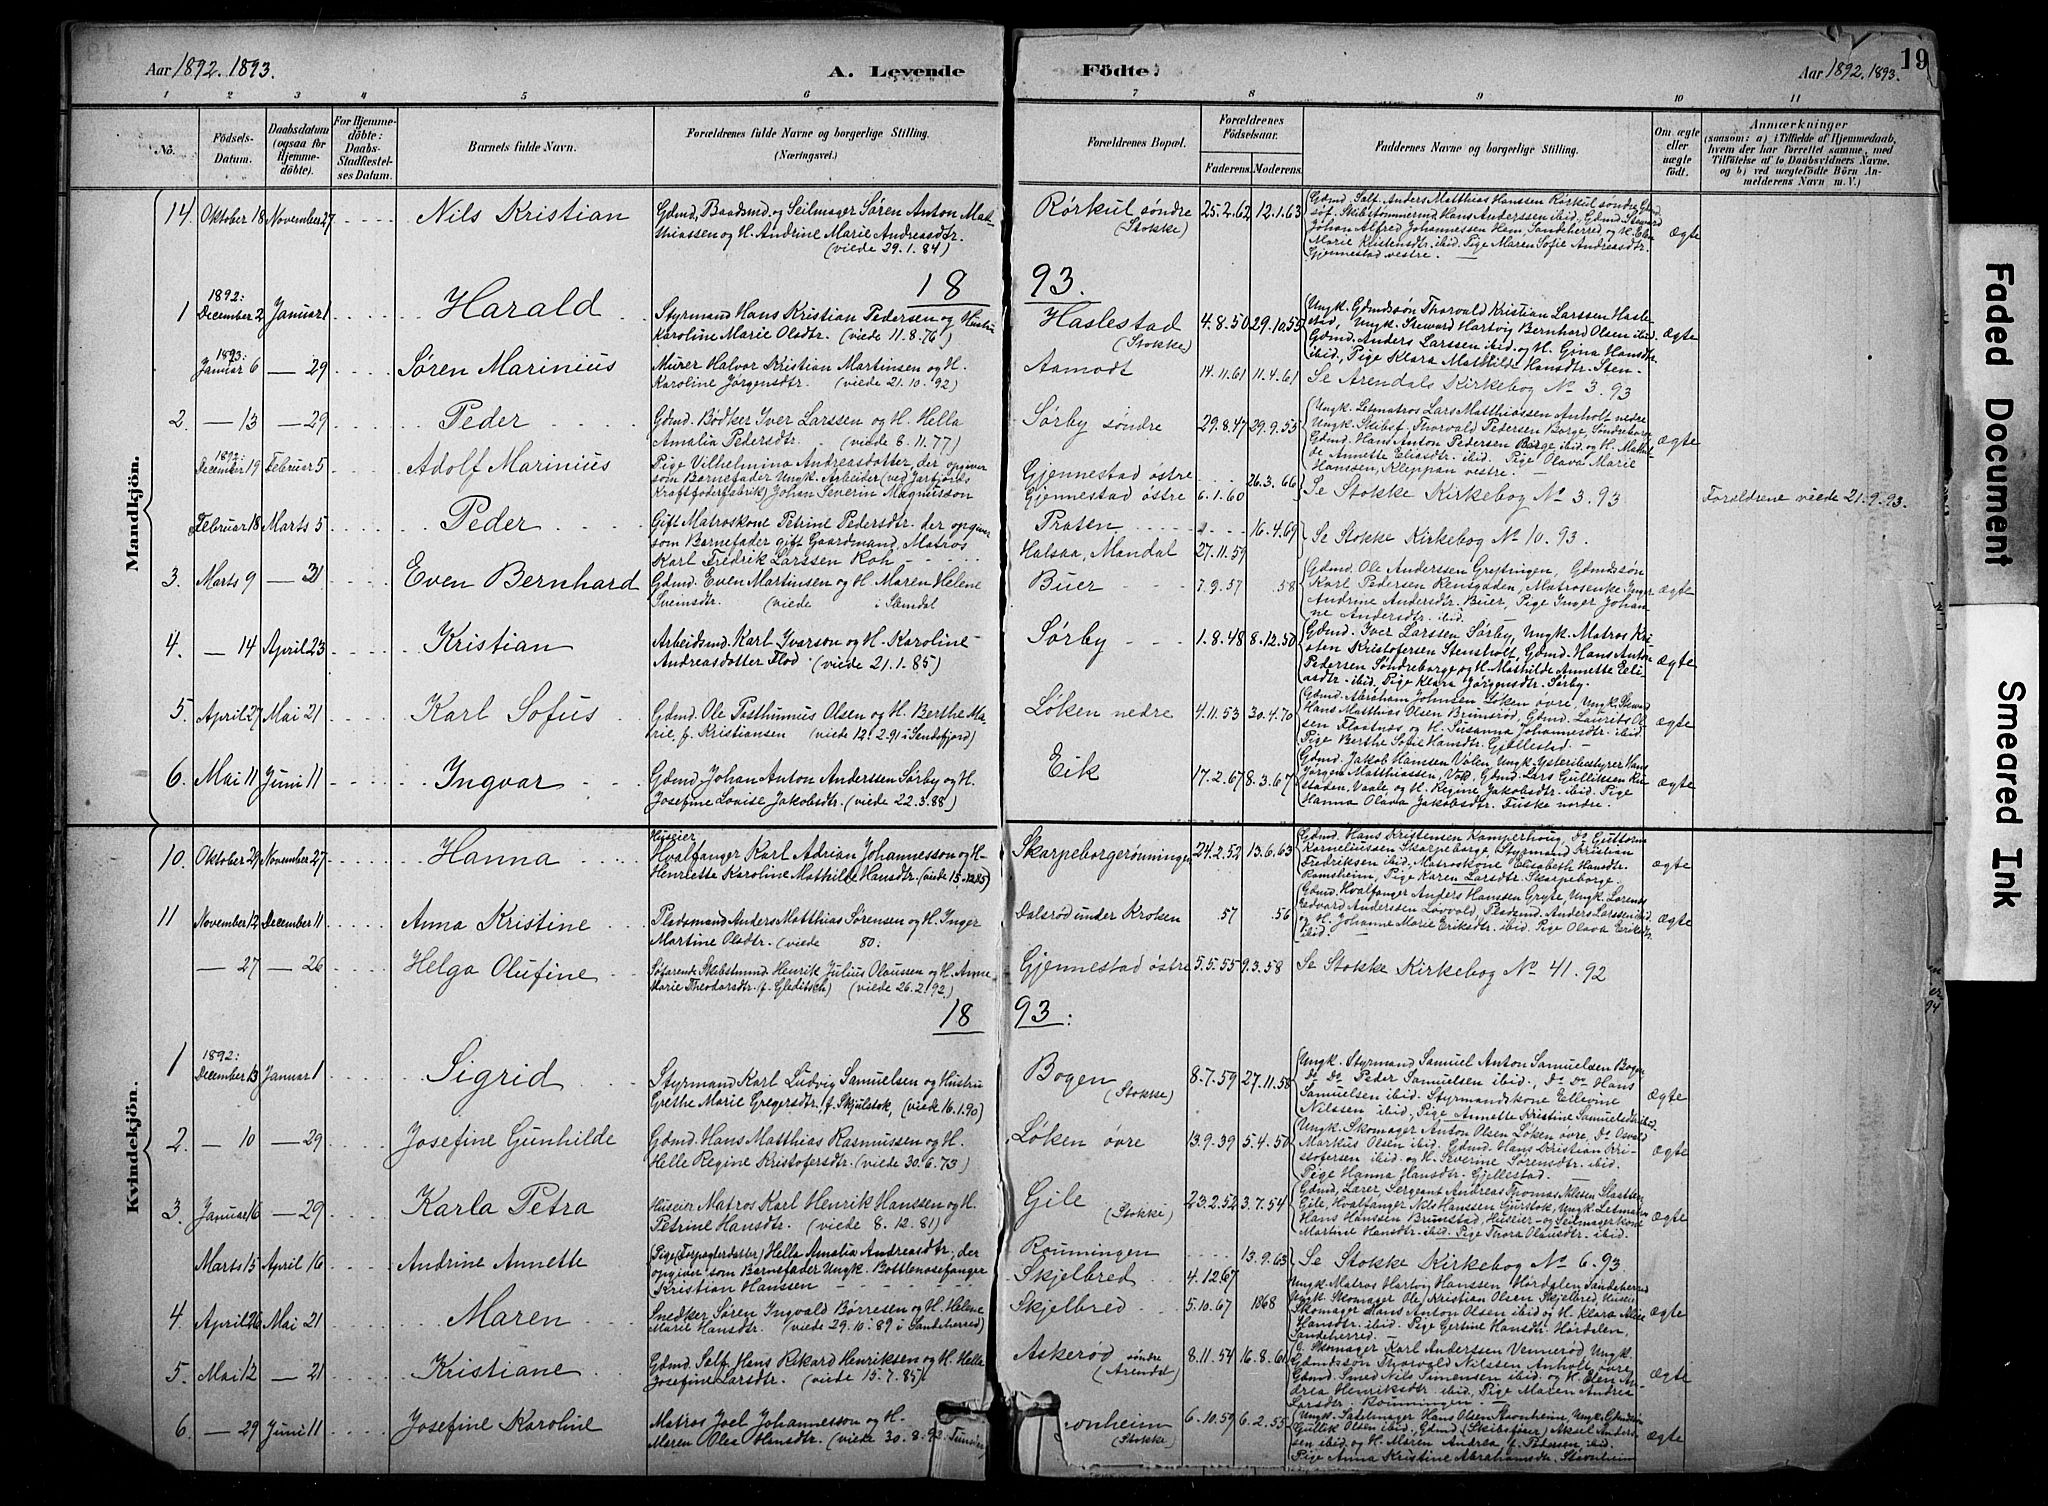 Aar 1892. 1893.
A. Levende
Födte.
Aar 1892. 1893.
19
1 2 3 4 5 6 7 8 9 10 11
No.
Födsels-Datum.
Daabsdatum (ogsaa for Hjemme-döbte).
For Hjemme-döbte: Daabs-Stadfæstel-ses Datum.
Barnets fulde Navn.
Forældrenes fulde Navne og borgerlige Stilling.
(Næringsvei.)
Forældrenes Bopæl.
Forældrenes Födselsaar.
Faderens. Moderens.
Faddernes Navne og borgerlige Stilling.
Om ægte eller uægte födt.
Anmærkninger
(saasom: a) i Tilfælde af Hjemmedaab,
hvem der har forrettet samme, med
Tilföielse af to Daabsvidners Navne.
og b) ved uægtefödte Börn An-
melderens Navn m. V.)
Mandkjön.
14. Oktober 18 November 27 Nils Kristian Gdmd, Baadsmd og Seilmager Søren Anton Mat-
thiassen og H. Andrine Marie Andreasdtr.
(viede 29.1.84)
Rørkul søndre
(Stokke)
25.2.62 12.1.63
Gdmd. Salf. Anders Matthias Hanssen Rørkul søndre
Johan Alfred Johannessen Ham, Sandeherred og H. Elen
Marie Kristensdtr. ibid. Pige Maren Sofie Andreasdtr.
Gjennestad vestre.
ægte
1893.
1 1892: December 2 Januar 1 Harald Styrmand Hans Kristian Pedersen og Hustru
Karoline Marie Olsdtr. (viede 11.8.76)
Haslestad
(Stokke)
4.8.50 29.10.55
Ungk. Gdmdssøn Thorvald Kristian Larssen Hasle-
stad, Ungk. Steward Hartvig Bernhard Olsen ibid.
Gdmd. Anders Larssen ibid. og H. Gina Hansdtr.
ibid., Pige Klara Mathilde Hansdtr. Sten-
ægte
1893: Januar 6 — 29 Søren Marinius Murer Halvor Kristian Martinsen og H.
Karoline Jørgensdtr. (viede 21.10.92)
Aamodt
14.11.61 11.4.61
Se Arendals Kirkebog No 3.93
2. — 13 — 29 Peder Gdmd. Bødker Iver Larssen og H. Hella
Amalia Pedersdtr. (viede 8.11.77)
Sørby søndre
29.8.47 29.9.55
Ungk. Letmatros Lars Matthiassen Anholt nedre
Ungk. Skibsf. Thorvald Pedersen Borge Søndreborge
Gdmd. Hans Anton Pedersen Borge ibid. og H. Mathil-
de Annette Eliasdtr. ibid. Pige Olava Marie
Hanssen, Kleppan vestre.
ægte
1892: December 19 Februar 5 Adolf Marinius Pige Vilhelmina Andreasdotter, der opgiver
som Barnefader Ungk. Arbeider (ved Jarfjords
Kraftfoderfabrik) Johan Severin Magnusson
Gjennestad østre 26.3.66
Gjennestad østre 6.1.60
Se Stokke Kirkebog No 3.93
Forældrene viede 21.9.93.
Februar 18 Marts 5 Peder Gift Matroskone Petrine Pedersdtr. der opgiver
som Barnefader gift Gaardmand, Matros
Karl Fredrik Larssen Roh
Praten 16.4.69
Halsaa, Mandal 27.11.59
Se Stokke Kirkebog No 10.93.
3. Marts 9 — 31 Even Bernhard Gdmd. Even Martinsen og H. Maren Helene
Sveinsdtr. (viede i Slemdal
Buer
7.9.57 58
Gdmd. Ole Andersen Grytingen, Gdmdssøn
Karl Pedersen Rensgaden, Matrosenke Inger
Andrine Andersdtr. Buer, Pige Inger Johan-
ne Andersdtr. ibid.
ægte
4. — 14 April 23 Kristian Arbeidsmd. Karl Ivarson og H. Karoline
Andreasdotter Flod (viede 21.1.85)
Sørby
1.8.48 8.12.50
Gdmd. Iver Larssen Sørby, Ungk. Matros Kri-
sten Kristofersen Stensholt, Gdmd. Hans Anton
Pedersen Søndreborge og H. Mathilde Annette Eli-
asdtr. ibid. Pige Klara Jørgensdtr. Sørby.
ægte
5. April 27 Mai 21 Karl Sofus Gdmd. Ole Posthumus Olsen og H. Berthe Ma-
rie, f. Kristiansen (viede 12.2.91 i Sandefjord)
Løken nedre
4.11.53 30.4.70
Gdmd. Abraham Johnsen Løken øvre, Ungk. Steward
Hans Matthias Olsen Brunsrød, Gdmd. Laurits Ol-
sen Flaatnes og H. Susanna Johannesdtr. ibid.
Pige Berthe Sofie Hansdtr. Gjellestad
ægte
6. Mai 11 Juni 11 Ingvar Gdmd. Johan Anton Anderssen Sørby og H.
Josefine Lovise Jakobsdtr. (viede 22.3.88)
Eik
17.2.67 8.3.67
Gdmd. Jakob Hansen Vølen, Ungk. Ysteribestyrer Hans
Jørgen Matthiassen, Gdmd. Lars Gulliksen Ru-
staden, Vaale, og H. Regine Jakobsdtr. ibid. Pige
Hanna Olava Jakobsdtr. Fuske nordre.
ægte
Kvindekjön.
10. Oktober 29 November 27 Hanna Huseier
Hvalfanger Karl Adrian Johannesson og H.
Henriette Karoline Mathilde Hansdtr. (viede 15.12.85)
Skarpeborgerønningen
24.2.52 13.6.63
Gdmd. Hans Kristensen Kamperhoug, Do Guttorm
Korneliussen Skarpeborge, Styrmand Kristian
Fredriksen ibid. Matroskone Elisabeth Hansdtr.
Ramsheim, Pige Karen Larsdtr. Skarpeborge.
ægte
11 November 12 December 11 Anna Kristine Pladsmand Anders Matthias Sørensen og H. Inger
Martine Olsdtr. (viede 80.
Dalsrød under Kroken
57 56
Gdmd. Hvalfanger Anders Hanssen Gryte, Ungk. Lorens
Edvard Anderssen Løvvold, Pladsmd. Anders Larssen ibid.
og H. Johanne Marie Eriksdtr. ibid. Pige Olava Eriksdtr.
ibid.
ægte
— 27 — 26 Helga Olufine Søfarende Skibstmmd. Henrik Julius Olaussen og H. Anne
Marie Theodorsdtr. (f. Gleditsch) (viede 26.2.92)
Gjennestad østre
5.5.55 9.3.58
Se Stokke Kirkebog No 41.92
1893:
1 1892: December 13 Januar 1 Sigrid Styrmand Karl Ludvig Samuelsen og Hustru
Grethe Marie Gregersdtr. f. Skjulstok, (viede 16.1.90)
Bogen
(Stokke)
8.7.59 27.11.58
Ungk. Styrmand Samuel Anton Samuelsen Bogen
Do Do Peder Samuelsen ibid., Do Do Hans
Samuelsen ibid. Styrmandskone Ellevine
Nilssen ibid., Pige Annette Kristine Samuelsdtr. ibid.
ægte
2. — 10 — 29 Josefine Gunhilde Gdmd. Hans Matthias Rasmussen og H.
Helle Regine Kristofersdtr. (viede 30.6.73)
Løken øvre
13.9.39 5.4.50
Ungk. Skomager Anton Olsen Løken øvre, Do Osvald
Markus Olsen ibid. Gdmd. Hans Kristian Kri-
stofersen ibid. og H. Severine Sørensdtr. ibid.
Pige Hanna Hansdtr. Gjellestad.
ægte
3. Januar 16 — 29 Karla Petra Huseier Matros Karl Henrik Hanssen og H.
Petrine Hansdtr. (viede 8.12.81)
Gile
(Stokke)
23.2.52 3.7.54
Gdmd, Lærer, Sergeant Andreas Thomas Nilsen
Gile, Hvalfanger Nils Hanssen Gurstok, Ungk. Letmatros
Hans Hanssen Brunstad, Huseier- og Seilmagerkone
Martine Hansdtr. ibid. Pige Thora Olausdtr. ibid.
ægte
Marts 15 April 16 Andrine Annette Pige (Forpagterdatter) Hella Amalia Andreasdtr., der
opgiver som Barnefader Ungk. Bottlenosefanger
Kristian Hanssen
Rønningen 13.9.63
Skjelbred 4.12.67
Se Stokke Kirkebog No 6.93.
4. April 26 Mai 21 Maren Snedker Søren Ingvald Børresen og H. Helene
Marie Hansdtr. (viede 29.10.89 i Sandeherred)
Skjelbred
5.10.67 1868
Ungk. Matros Hartvig Hanssen Hørdalen Sandeherred
Ungk. Skomager Ole Kristian Olsen Skjelbred, Huseier
Skomager Hans Anton Olsen ibid og H. Klara Alise
Hansdtr. ibid. Pige Gertine Hansdtr. Hørdalen,
Sandeherred.
ægte
5. Mai 12 — 21 Kristiane Gdmd. Salf. Hans Rikard Henriksen og H. Hella
Josefine Larsdtr. (viede 15.7.85)
Askerød søndre
(Arendal)
8.11.54 16.8.61
Skomager Karl Anderssen Vennerød Ungk.
Gdmdssøn Thorvald Nilssen Anholt øvre,
Gdmd. Smed Nils Simensen ibid. og H. Elen An-
drea Henriksdtr. ibid., Pige Maren Andrea
Larsdtr. Rønningen.
ægte
6. — 29 Juni 11 Josefine Karoline Matros Joel Johannesson og H.
Maren Olea Hansdtr. (viede 30.8.92
onheim
(Stokke)
6.10.59 6.2.55
Ungk. Sadelmager Hans Olsen Stavnheim, Ungk. Gdmdssøn
Gullik Olsen ibid., Gdmd (Skibsfører) Aksel Anders-
sen ibid. og H. Maren Andrea f. Pedersen ibid.
Pige Anna Kristine Abrahamsdtr. Stavnheim
ægte
Faded Document
Smeared Ink